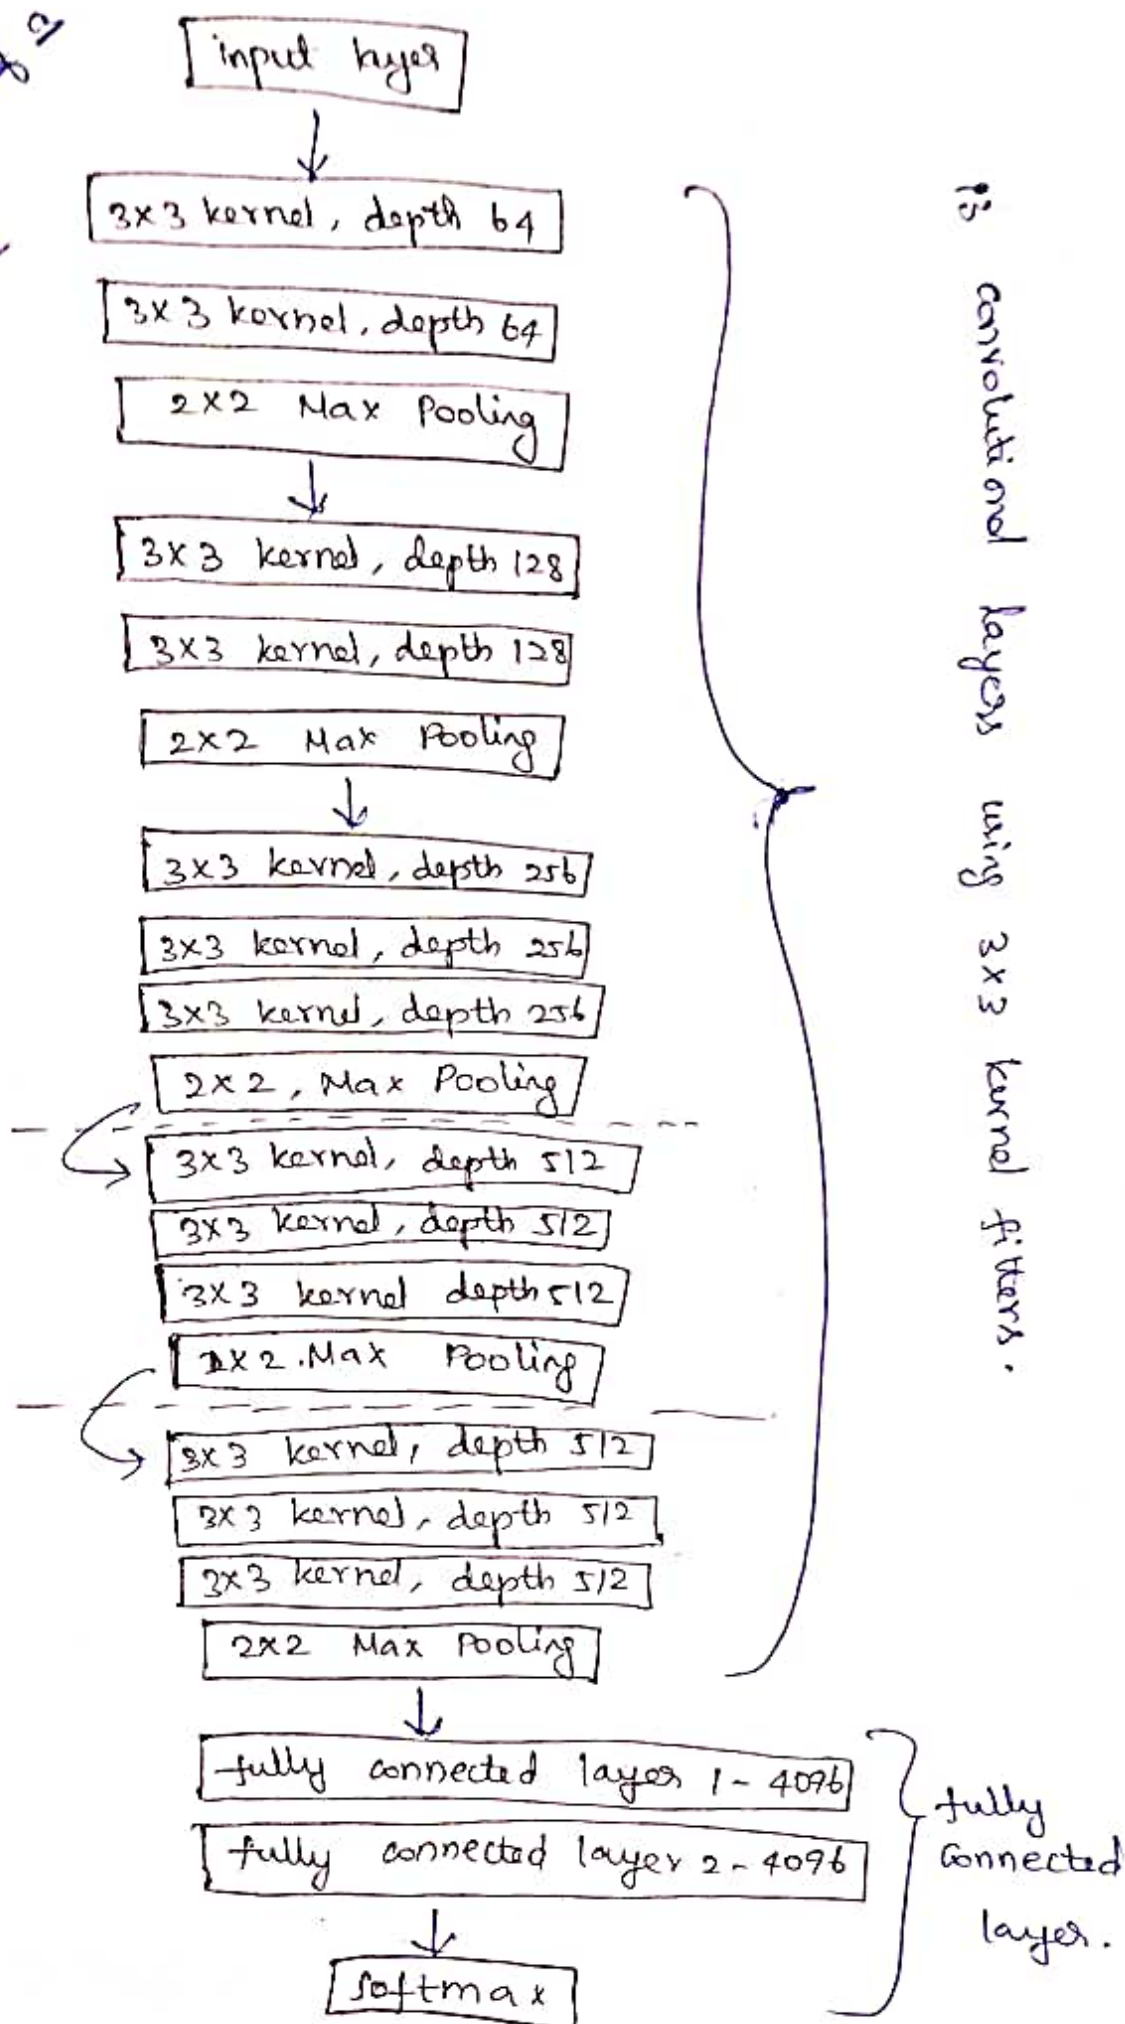 input layer
3x3 kernel, depth 64
3x3 kernel, depth 64
2x2 Max Pooling
3x3 kernel, depth 128
3x3 kernel, depth 128
2x2 Max Pooling
3x3 kernel, depth 256
3x3 kernel, depth 256
3x3 kernel, depth 256
2x2, Max Pooling
3x3 kernel, depth 512
3x3 kernel, depth 512
3x3 kernel depth 512
2x2. Max Pooling
3x3 kernel, depth 512
3x3 kernel, depth 512
3x3 kernel, depth 512
2x2 Max Pooling
fully connected layer 1 - 4096
fully connected layer 2 - 4096
softmax
13 convolutional layers using 3x3 kernel filters.
fully
connected
layer.